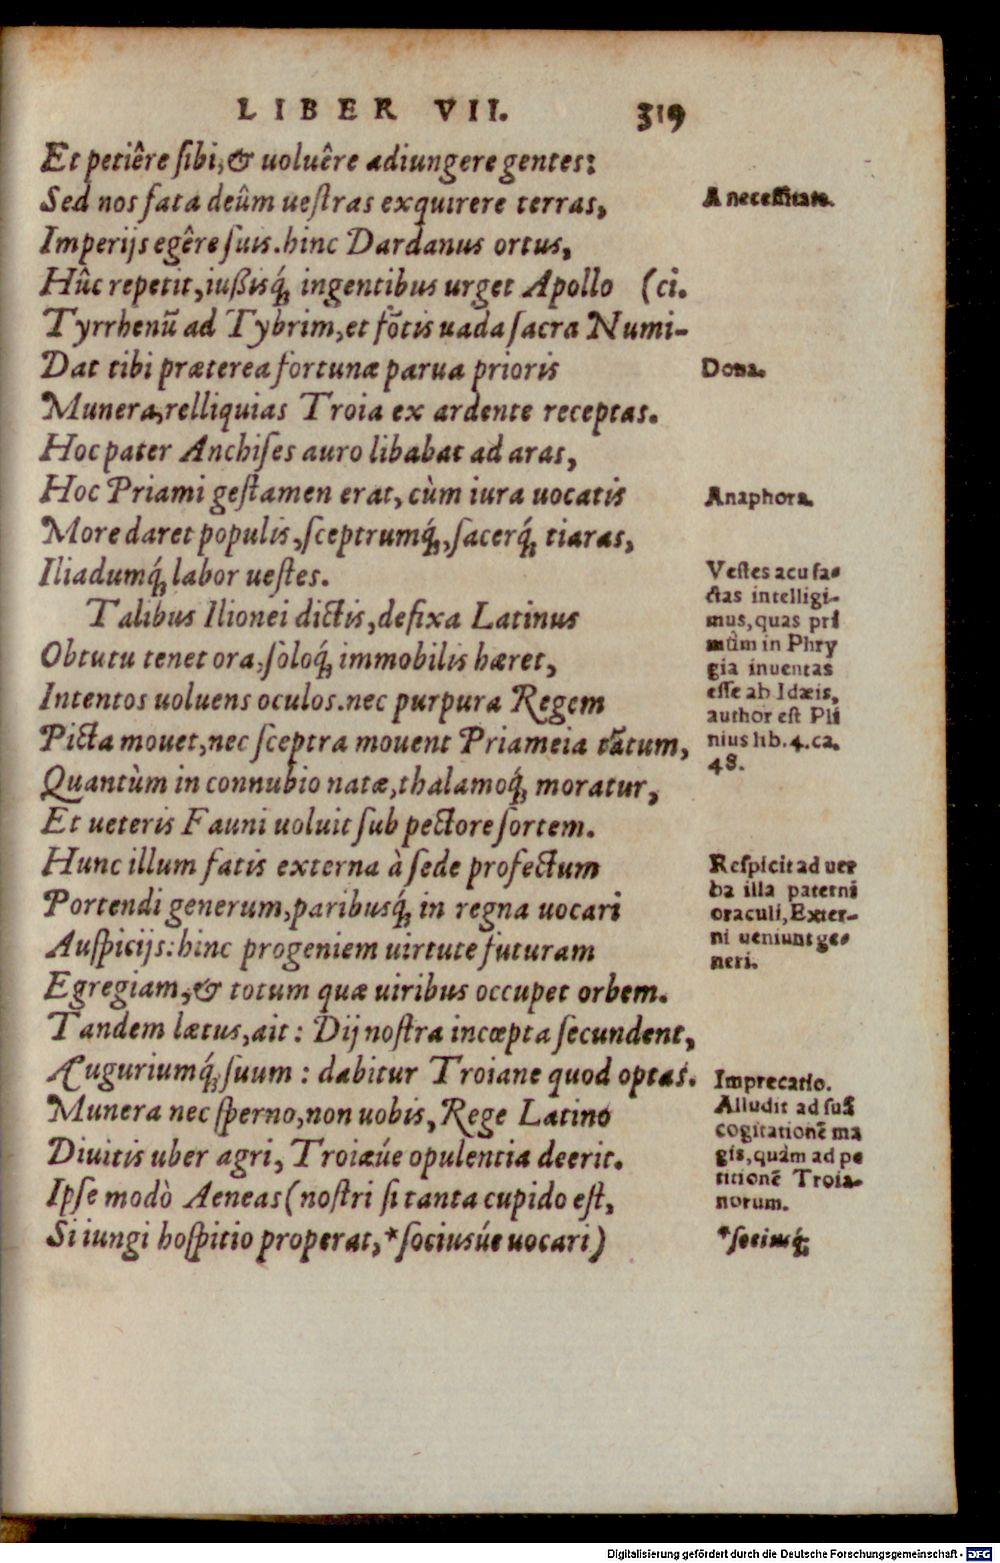 LIBER VII. 319
Et petiêre sibi, & uoluêre adiungere gentes:
Sed nos fata deûm uestras exquirere terras,
A necessitate.
Imperijs egêre suis. hinc Dardanus ortus,
Hûc repetit, iußisq́; ingentibus urget Apollo (ci.
Tyrrhenũ ad Tybrim, et fõtis uada sacra Numi-
Dat tibi præterea fortunæ parua prioris
Dona.
Munera, relliquias Troia ex ardente receptas.
Hoc pater Anchises auro libabat ad aras,
Hoc Priami gestamen erat, cùm iura uocatis
Anaphora.
More daret populis, sceptrumq́;, sacerq́; tiaras,
Iliadumq́; labor uestes.
Talibus Ilionei dictis, defixa Latinus
Obtutu tenet ora, soloq́; immobilis hæret,
Intentos uoluens oculos. nec purpura Regem
Picta mouet, nec sceptra mouent Priameia tãtum,
Quantùm in connubio natæ, thalamoq́; moratur,
Vestes acu fa-
ctas intelligi-
mus, quas pri
mùm in Phry
gia inuentas
esse ab Idæis,
author est Pli
nius lib. 4. ca.
48.
Et ueteris Fauni uoluit sub pectore sortem.
Hunc illum fatis externa à sede profectum
Portendi generum, paribusq́; in regna uocari
Auspicijs: hinc progeniem uirtute futuram
Egregiam, & totum quæ uiribus occupet orbem.
Respicit ad uer
ba illa paterni
oraculi, Exter-
ni ueniunt ge-
neri.
Tandem lætus, ait: Dij nostra incœpta secundent,
Auguriumq́; suum: dabitur Troiane quod optas.
Munera nec sperno, non uobis, Rege Latino
Diuitis uber agri, Troiæúe opulentia deerit.
Ipse modò Aeneas (nostri si tanta cupido est,
Imprecatio.
Alludit ad suã
cogitationẽ ma
gis, quàm ad pe
titionẽ Troia-
norum.
Si iungi hospitio properat, *sociusúe uocari)
*sociusq́;
Digitalisierung gefördert durch die Deutsche Forschungsgemeinschaft - DFG